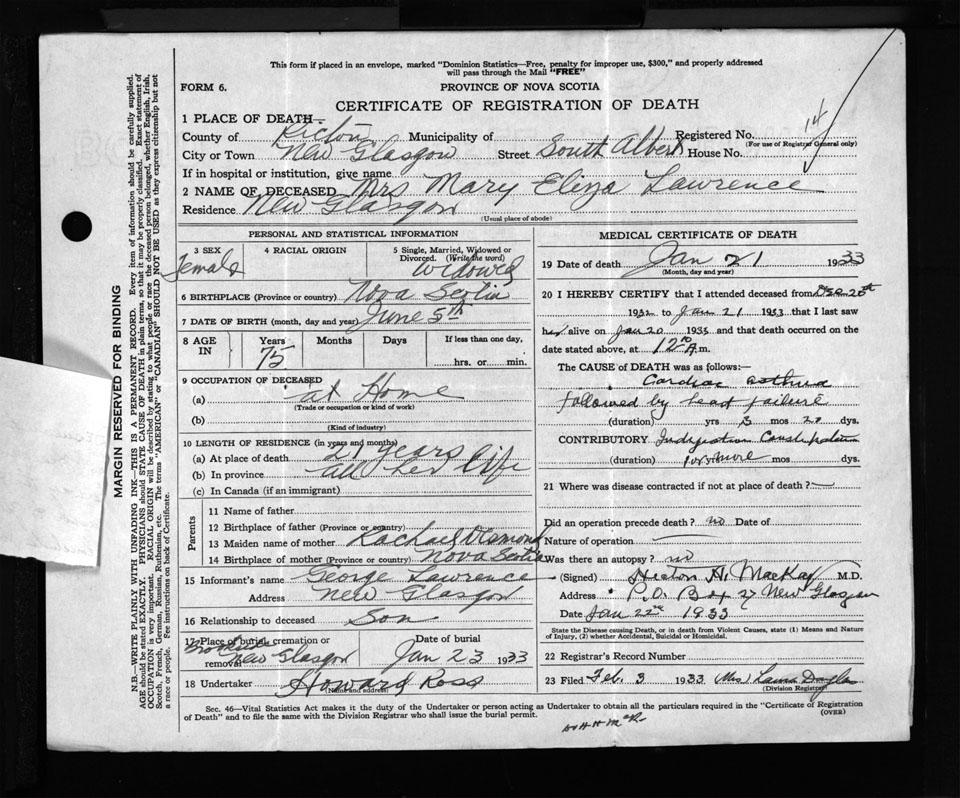 This form if placed in an envelope, marked "Dominion Statistics—Free, penalty for improper use, $300," and properly addressed
will pass through the Mail "FREE"
FORM 6.
PROVINCE OF NOVA SCOTIA
CERTIFICATE OF REGISTRATION OF DEATH
14
1 PLACE OF DEATH—
County of Pictou Municipality of Registered No.
(For use of Registrar General only)
City or Town New Glasgow Street South Albert House No.
If in hospital or institution, give name
2 NAME OF DECEASED Mrs Mary Eliza Lawrence
Residence New Glasgow
(Usual place of abode)
PERSONAL AND STATISTICAL INFORMATION
3 SEX 4 RACIAL ORIGIN 5 Single, Married, Widowed or Divorced. (Write the word)
Female Widowed
6 BIRTHPLACE (Province or country) Nova Scotia
7 DATE OF BIRTH (month, day and year) June 5th
8 AGE IN Years Months Days If less than one day,
75 hrs. or min.
9 OCCUPATION OF DECEASED
(a) at Home
(Trade or occupation or kind of work)
(b)
(Kind of industry)
10 LENGTH OF RESIDENCE (in years and months)
(a) At place of death 21 years
(b) In province all her life
(c) In Canada (if an immigrant)
Parents
11 Name of father
12 Birthplace of father (Province or country)
13 Maiden name of mother Rachael
14 Birthplace of mother (Province or country) Nova Scotia
15 Informant's name George Lawrence
Address New Glasgow
16 Relationship to deceased Son
17 Place of burial, cremation or removal Date of burial
New Glasgow Jan 23 1933
18 Undertaker Howard Ross
(Name and address)
MEDICAL CERTIFICATE OF DEATH
19 Date of death Jan 21 1933
(Month, day and year)
20 I HEREBY CERTIFY that I attended deceased from Dec 20th
1932 to Jan 21 1933 that I last saw
her alive on Jan 20 1933 and that death occurred on the
date stated above, at 12 A.m.
The CAUSE of DEATH was as follows:—
Cardiac asthma
followed by heart failure
(duration) yrs mos 20 dys.
CONTRIBUTORY Indigestion Constipation
(duration) mos dys.
21 Where was disease contracted if not at place of death?
Did an operation precede death? no Date of
Nature of operation
Was there an autopsy? no
(Signed) H. MacKay M.D.
Address P.O. Box 27 New Glasgow
Date Jan 22nd 1933
State the Disease causing Death, or in death from Violent Causes, state (1) Means and Nature
of Injury, (2) whether Accidental, Suicidal or Homicidal.
22 Registrar's Record Number
23 Filed Feb. 3 1933 (Mrs)
(Division Registrar)
Sec. 46—Vital Statistics Act makes it the duty of the Undertaker or person acting as Undertaker to obtain all the particulars required in the "Certificate of Registration
of Death" and to file the same with the Division Registrar who shall issue the burial permit.
(OVER)
MARGIN RESERVED FOR BINDING
N.B.—WRITE PLAINLY WITH UNFADING INK—THIS IS A PERMANENT RECORD. Every item of information should be carefully supplied.
AGE should be stated EXACTLY. PHYSICIANS should STATE CAUSE OF DEATH in plain terms, so that it may be properly classified. Exact statement of
OCCUPATION is very important. RACIAL ORIGIN will be described by stating to what people or race the deceased person belonged, whether English, Irish,
Scotch, French, German, Russian, Ruthenian, etc. The terms "AMERICAN" or "CANADIAN" SHOULD NOT BE USED as they express citizenship but not
a race or people. Fee instructions on back of Certificate.